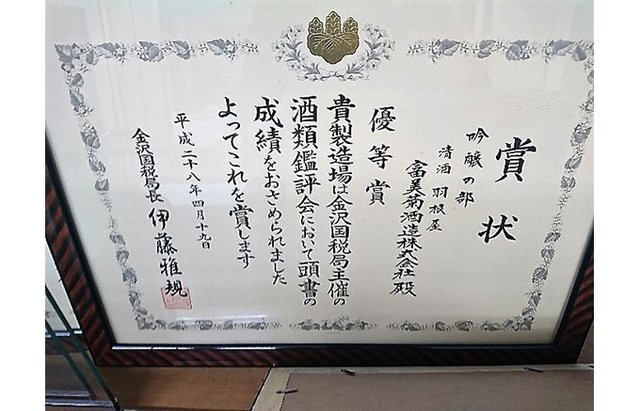 賞状
吟醸の部
清酒 羽根屋
富美菊酒造株式会社 殿
優等賞
貴製造場は金沢国税局主催の
酒類鑑評会において頭書の
成績をおさめられました
よってこれを賞します
平成二十八年四月十九日
金沢国税局長 伊藤雅規